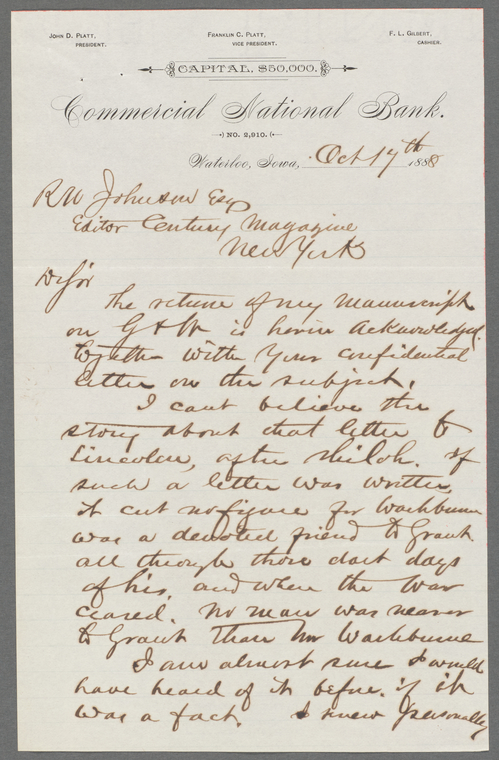 JOHN D. PLATT,
PRESIDENT.
FRANKLIN C. PLATT,
VICE PRESIDENT.
F. L. GILBERT,
CASHIER.
CAPITAL, $50,000.
Commercial National Bank.
NO. 2,910.
Waterloo, Iowa, Oct 17th 1888
R W Johnson Esq
Editor Century Magazine
New York
D Sir
The return of my manuscript
on G & W is herein acknowledged
together with your confidential
letter on the subject.
I cant believe the
story about that letter to
Lincoln, after Shiloh. If
such a letter was written
it cut no figure for Washburne
was a devoted friend to Grant
all through those dark days
of his, and when the War
ceased. No man was nearer
to Grant than Mr Washburne
I am almost sure I would
have heard of it before, if it
was a fact. I knew personally